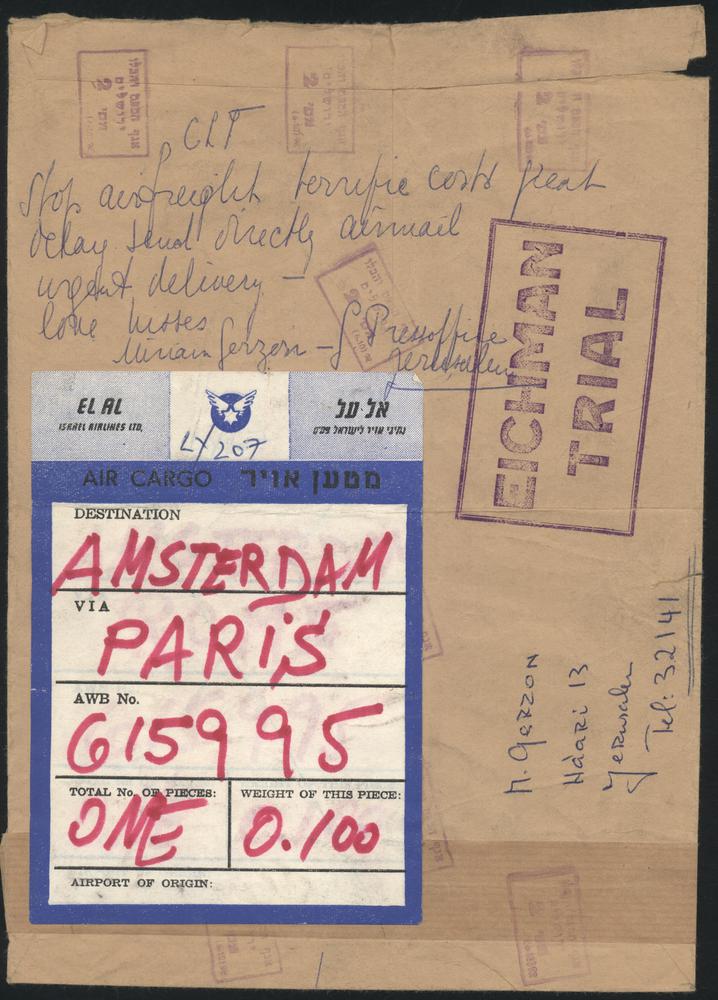 CLT
Stop airfreight terrific costs great
delay send directly airmail
urgent delivery —
love kisses
Miriam Gerzon — Pressoffice
Jerusalem
EICHMAN
TRIAL
EL AL
ISRAEL AIRLINES LTD,
אל על
נתיבי אויר לישראל
LY 207
AIR CARGO מטען אויר
DESTINATION
AMSTERDAM
VIA
PARIS
AWB No.
615995
TOTAL No. OF PIECES:
ONE
WEIGHT OF THIS PIECE:
0.100
AIRPORT OF ORIGIN:
M. GERZON
Haari 13
Jerusalem
Tel: 32141